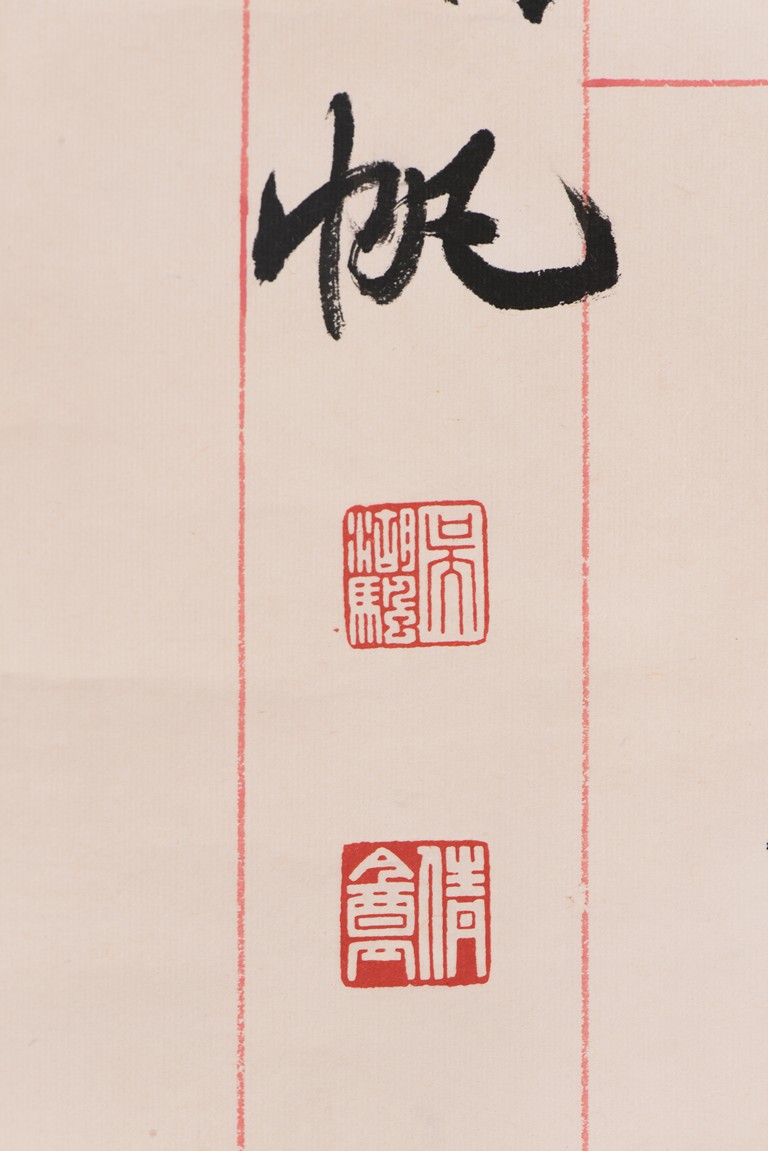 帆
吳湖颿
倩盦